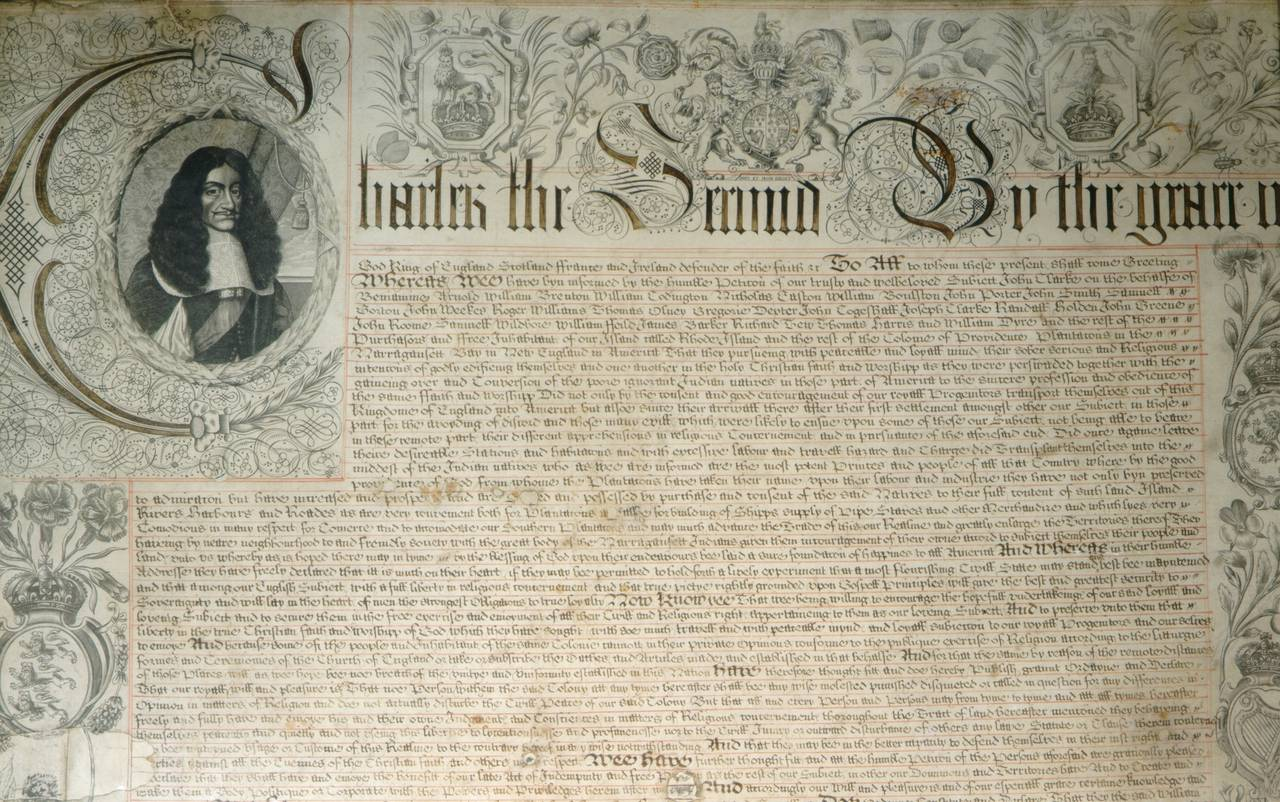 Charles the Second By the grace
God King of England Scotland ffrance and Ireland defender of the faith &c To All to whom these present shall come Greeting
Whereas Wee have byn informed by the humble Peticon of our trusty and welbeloved Subiect John Clarke on the behalfe of
Beniamine Arnold William Brenton William Codington Nicholas Easton William Boulston John Porter John Smith Samuell
Gorton John Weekes Roger Williams Thomas Olney Gregorie Dexter John Cogeshall Joseph Clarke Randall Holden John Greene
John Roome Samuell Wildbore William ffeild James Barker Richard Tew Thomas Harris and William Dyre and the rest of the
Purchasors and ffree Inhabitant of our Island called Rhode Island and the rest of the Colonie of Providence Plantacons in the
Narragansett Bay in New England in America That they pursueing with peaceable and loyall mind their sober serious and Religious
intencons of godly edifieing themselves and one another in the holy Christian faith and Worshipp as they were perswaded together with the
gaineing over and Conversion of the poore ignorant Indian natives in those part of America to the sincere profession and obedience of
the same ffaith and Worshipp Did not only by the consent and good encouragement of our royall Progenitors transport themselves out of this
Kingdome of England into America but alsoe since their arrivall there after their first settlement amongst other our Subiect in those
part for the avoyding of discord and those many evill which were likely to ensue upon some of those our Subiect not being able to beare
in these remote part their different apprehensions in religious Concernement and in pursuance of the aforesaid end Did once againe leave
theire desireable Stacions and habitacons and with excessive labour and travell hazard and Charge did Transplant themselves into the
middest of the Indian natives who as wee are informed are the most potent Princes and people of all that Country where by the good
God from whome the Plantacons have taken their name upon their labour and industrie they have not only byn preserved
to admiracon but have increased and and are and possessed by purchase and consent of the said Natives to their full content of such land Island
Rivers Harbours and Roades as are very convenient both for Plantacons for building of Shipps supply of Pipe Staves and other Merchandize and which lyes very
Comodious in many respect for Comerce and to accomodate our Southern Plantacons may much advance the Trade of this our Realme and greatly enlarge the Territories thereof They
haveing by neare neighbourhood to and friendly societie with the great body of the Narragansett Indians given them incouragement of their owne accord to subiect themselves their people and
land unto us whereby as is hoped there may in tyme by the blessing of God upon their endeavours bee laid a sure foundacon of happines to all America And Whereas in their humble
Addresse they have freely declared that it is much on their heart if they may bee permitted to hold forth a lively experiment that a most flourishing Civill State may stand best bee maynteined
and that among our English Subiect with a full liberty in religious concernement and that true pietye rightly grounded upon Gospell Principles will give the best and greatest security to
Soveraignty and will lay in the heart of men the strongest Obligacons to true loyalty Now Know yee That wee being willing to encourage the hopefull undertakeing of our said loyall and
loveing Subiect and to secure them in the free exercise and enioyment of all their Civill and Religious right appertaineing to them as our loveing Subiect And to preserve unto them that
liberty in the true Christian faith and Worshipp of God which they have sought with soe much travell and with peaceable mynd and loyall subieccon to our royall Progenitors and our selves
to enioye And because some of the people and inhabitant of the same Colonie cannot in their private Opinions conforme to the publique exercise of Religion according to the Liturgie
formes and Ceremonies of the Church of England or take or subscribe the Oathes and Articles made and established in that behalfe And for that the same by reason of the remote distances
of those Places will as wee hope bee noe breach of the unitye and uniformity established in this Nation Have therefore thought fit and doe hereby Publish graunt Ordeyne and Declare
That our royall will and pleasure is That noe Person within the said Colony att any tyme hereafter shall bee any wise molested punished disquieted or called in question for any differences in
Opinion in matters of Religion and doe not actually disturbe the Civill Peace of our said Colony But that all and every Person and Persons may from tyme to tyme and att all tymes hereafter
freely and fully have and enioye his and their owne and Consciences in matters of Religious concernement throughout the Tract of land hereafter mencioned they behaveing
themselves peaceably and quietly and not useing this libertie to and profanenesse nor to the Civill Iniury or outward disturbance of others any lawe Statute or Clause therein
usage or Custome of this Realme to the contrary hereof in any wise notwithstanding And that they may bee in the better capacity to defend themselves in their iust right and
against all the Enemies of the Christian faith and others respect Wee have further thought fit and att the humble Peticon of the Persons aforesaid are graciously pleased
declare That they shall have and enioye the benefit of our late Act of Indempnity and free as the rest of our Subiect in other our Dominions and Territories have And to Create and
make them a Body Politique or Corporate with the Powers and Priviledges herein after And accordingly our Will and pleasure is and of our especiall grace certaine knowledge and